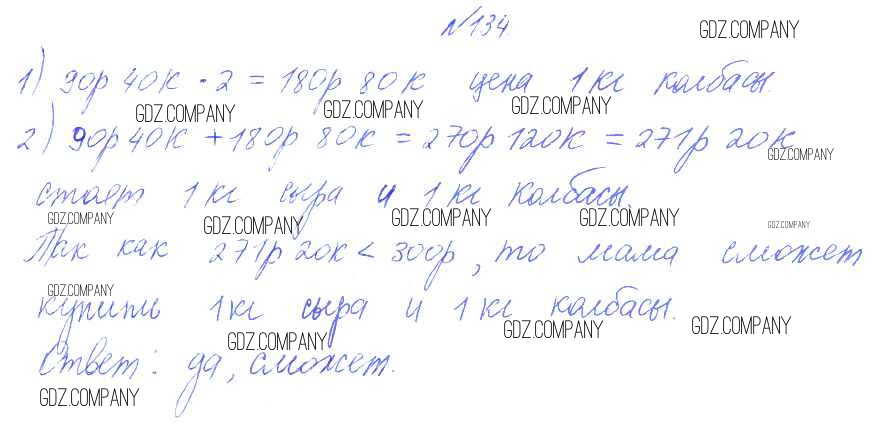 №134
GDZ.COMPANY
1) 90р 40к · 2 = 180р 80к цена 1 кг колбасы.
GDZ.COMPANY GDZ.COMPANY GDZ.COMPANY
2) 90р 40к + 180р 80к = 270р 120к = 271р 20к
GDZ.COMPANY
стоят 1 кг сыра и 1 кг колбасы.
GDZ.COMPANY GDZ.COMPANY GDZ.COMPANY GDZ.COMPANY GDZ.COMPANY
Так как 271р 20к < 300р, то мама сможет
GDZ.COMPANY
купить 1 кг сыра и 1 кг колбасы.
GDZ.COMPANY GDZ.COMPANY GDZ.COMPANY
Ответ: да, сможет.
GDZ.COMPANY